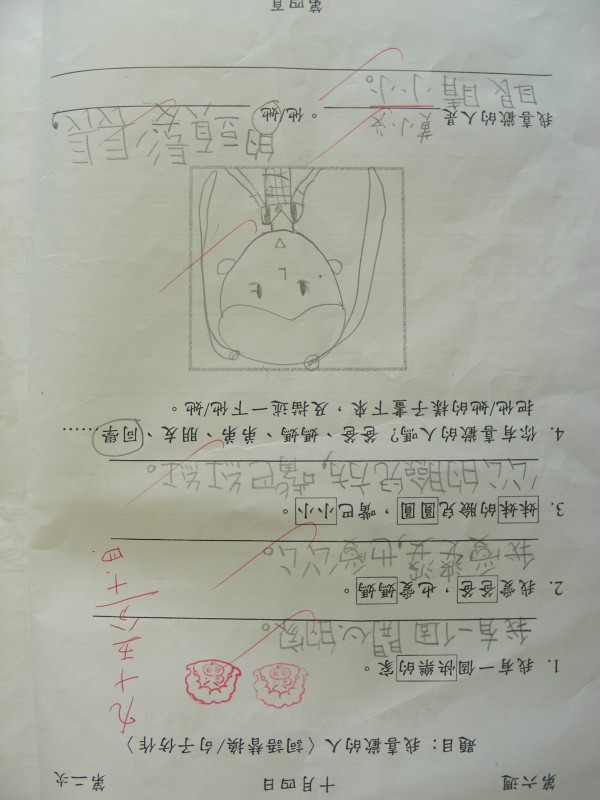 第六週 十月四日 第二次
題目：我喜歡的人〈詞語替換/句子仿作〉
1. 我有一個快樂的家。
我有一個開心的家。
2. 我愛爸爸，也愛媽媽。
我愛婆婆，也愛公公。
3. 妹妹的臉兒圓圓，嘴巴小小。
公公的臉兒方方，嘴巴紅紅。
九十五分
十.四
4. 你有喜歡的人嗎？爸爸、媽媽、弟弟、朋友、同學……
把他/她的樣子畫下來，及描述一下他/她。
我喜歡的人是 黃小。他/她 的頭髮長長，
眼睛小小。
第四頁